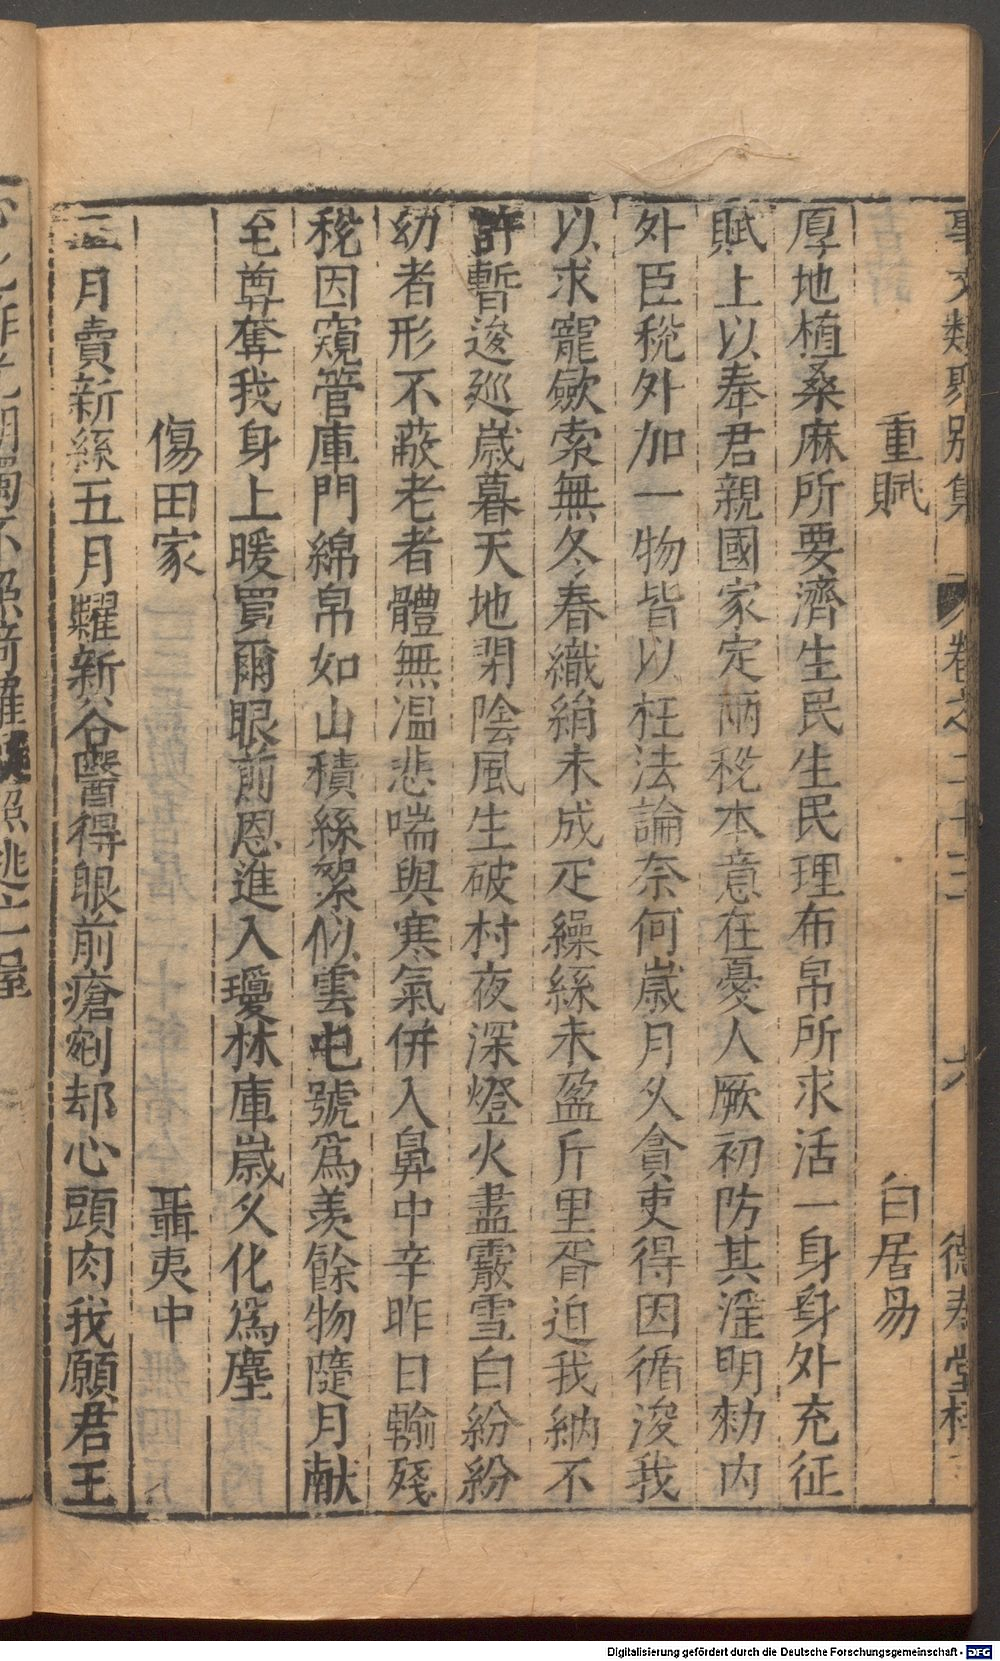 事文類聚別集 卷之二十三 六 德壽堂梓
重賦 白居易
厚地植桑麻所要濟生民生民理布帛所求活一身身外充征
賦上以奉君親國家定兩稅本意在憂人厥初防其淫明勑內
外臣稅外加一物皆以枉法論奈何歲月久貪吏得因循浚我
以求寵歛索無冬春織絹未成疋繰絲未盈斤里胥迫我納不
許暫逡巡歲暮天地閉陰風生破村夜深燈火盡霰雪白紛紛
幼者形不蔽老者體無溫悲喘與寒氣併入鼻中辛昨日輸殘
稅因窺管庫門綿帛如山積絲絮似雲屯號爲羨餘物隨月献
至尊奪我身上暖買爾眼前恩進入瓊林庫歲久化爲塵
傷田家 聶夷中
二月賣新絲五月糶新谷醫得眼前瘡剜却心頭肉我願君王
心化作光明燭不照綺羅筵照逃亡屋
Digitalisierung gefördert durch die Deutsche Forschungsgemeinschaft - DFG